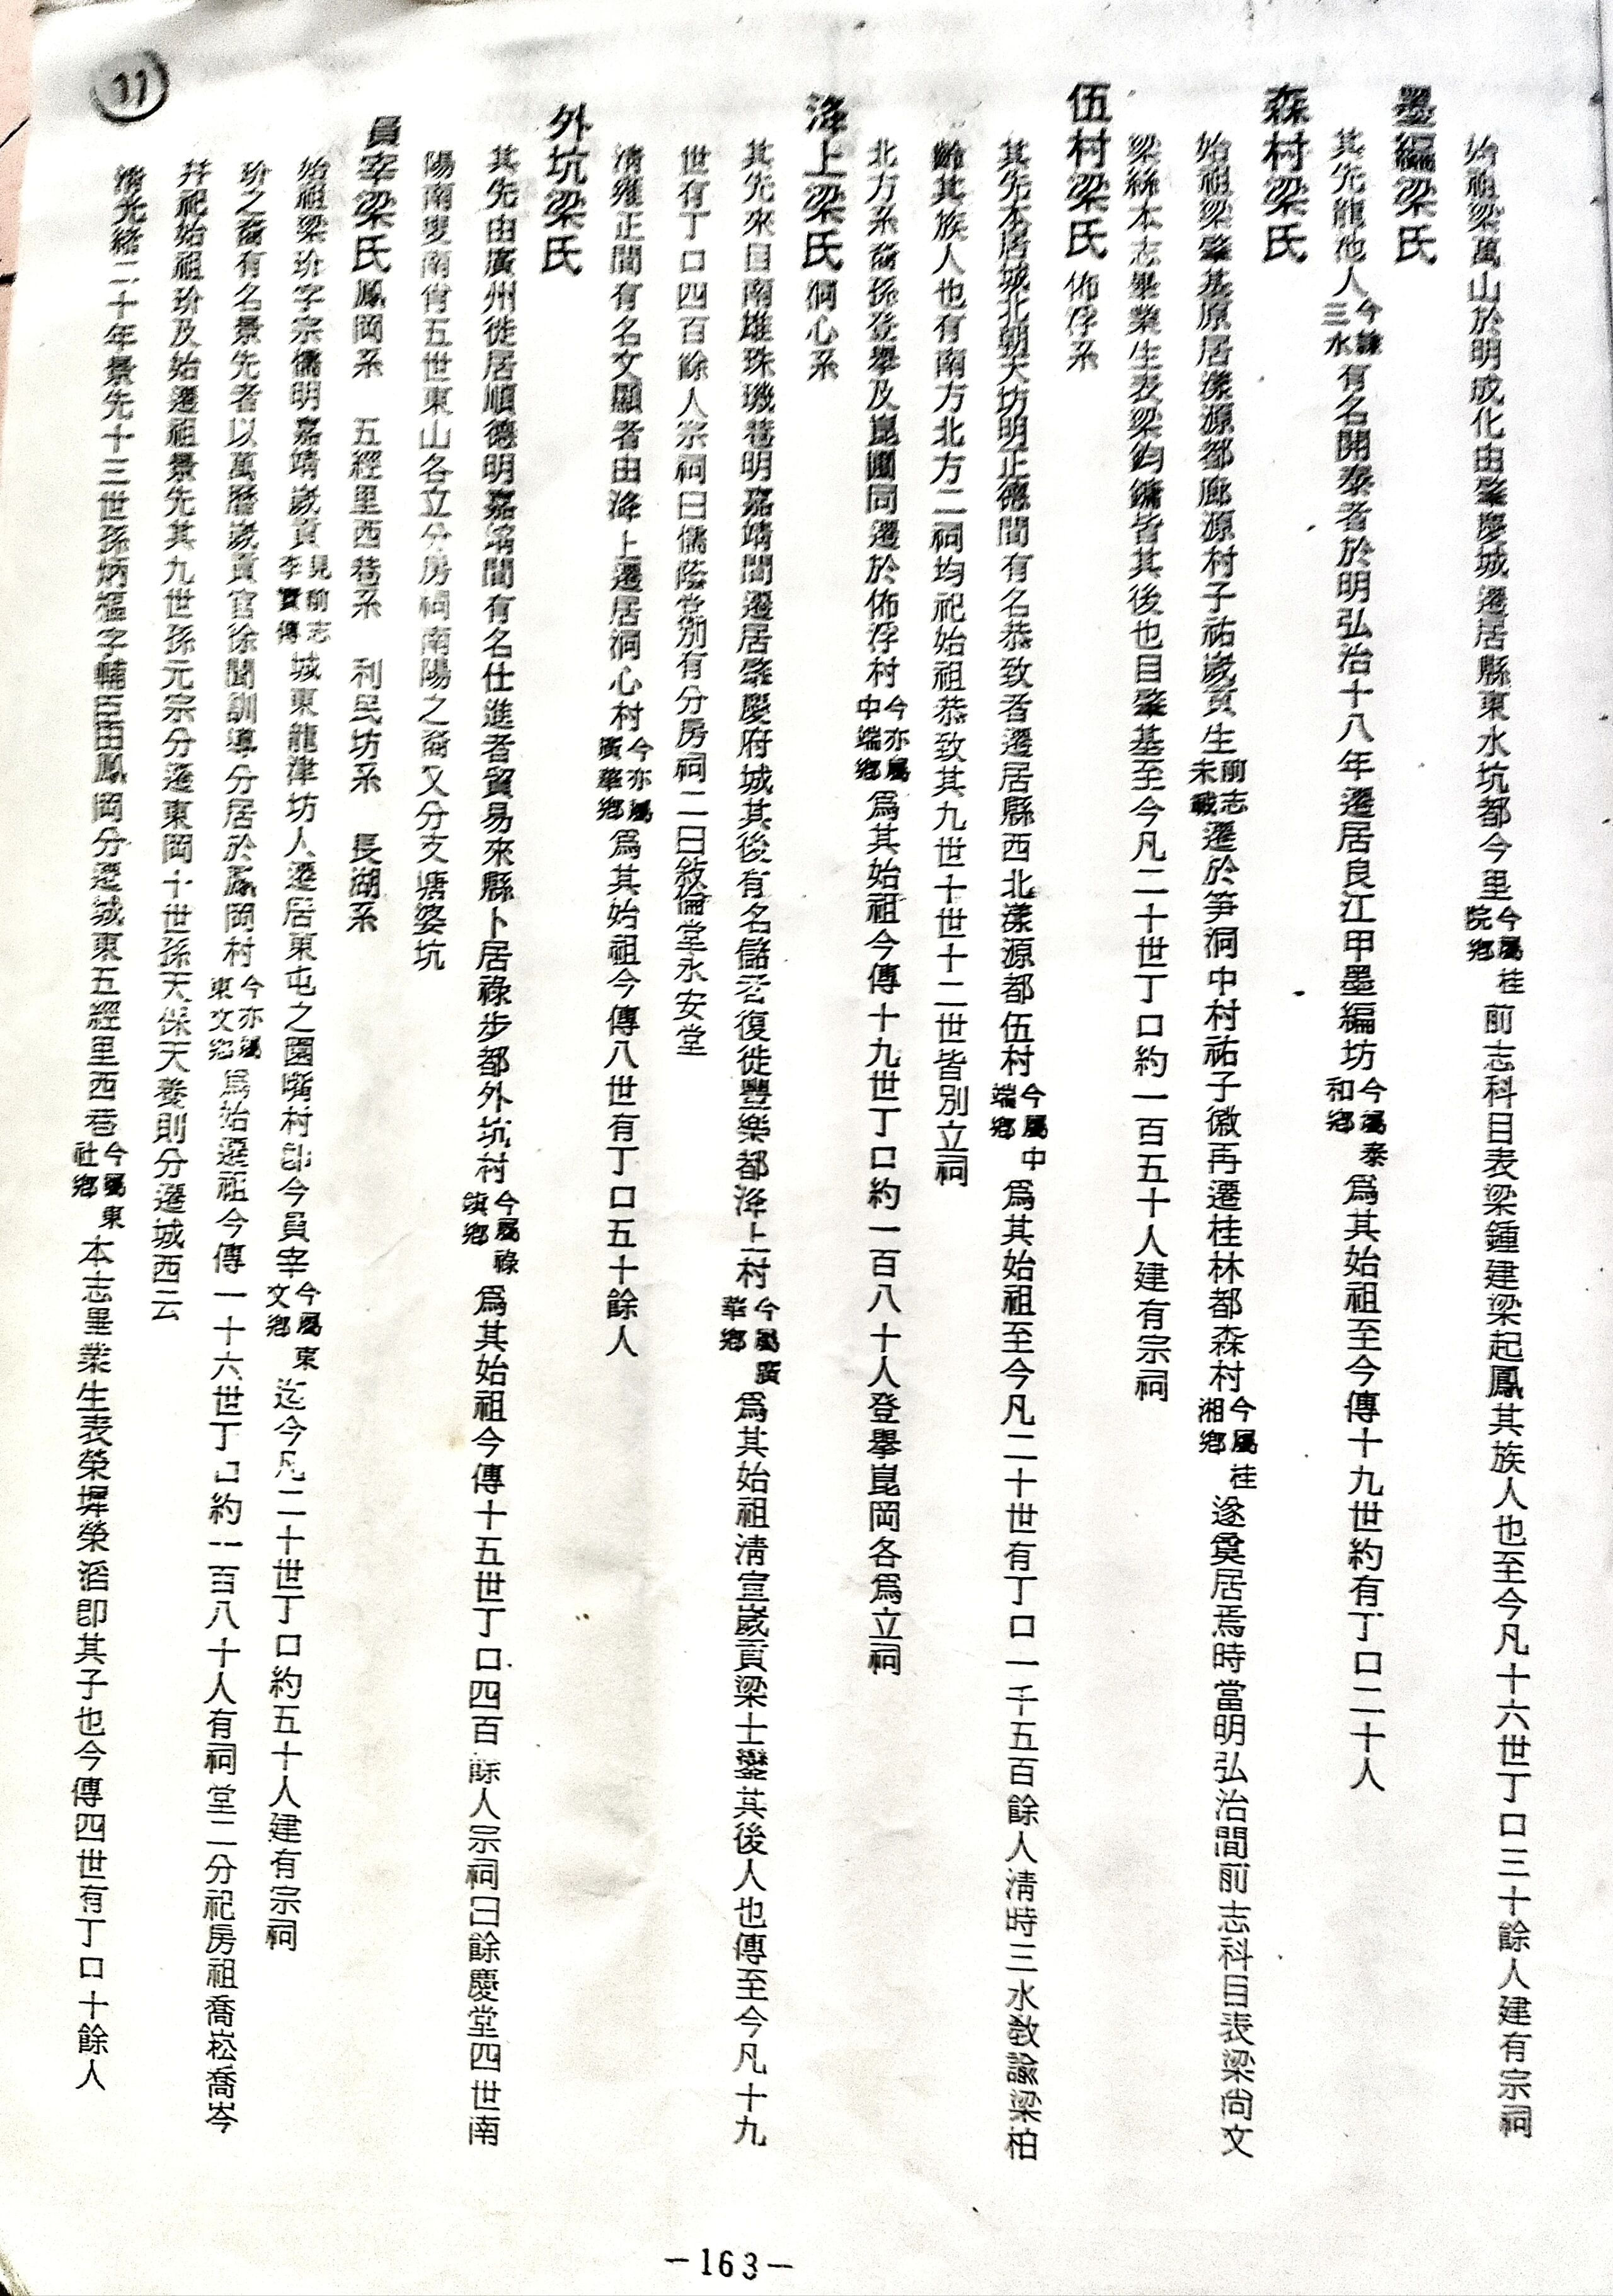 始祖梁萬山於明成化由肇慶城遷居縣東水坑都今里今屬桂院鄉前志科目表梁鍾建梁起鳳其族人也至今凡十六世丁口三十餘人建有宗祠
墨編梁氏
其先龍池人今隸三水有名開泰者於明弘治十八年遷居良江甲墨編坊今屬泰和鄉爲其始祖至今傳十九世約有丁口二十人
森村梁氏
始祖梁肇基原居漾源都廊源村子祐歲貢生前志未載遷於笋洞中村祐子徽再遷桂林都森村今屬桂湘鄉遂奠居焉時當明弘治間前志科目表梁尚文
梁絲本志畢業生表梁鈞鏞皆其後也自肇基至今凡二十世丁口約一百五十人建有宗祠
伍村梁氏 佈浮系
其先本居城北朝天坊明正德間有名恭致者遷居縣西北漾源都伍村今屬中端鄉爲其始祖至今凡二十世有丁口一千五百餘人清時三水敎諭梁柏
齡其族人也有南方北方二祠均祀始祖恭致其九世十世十二世皆別立祠
北方系裔孫登舉及崑圃同遷於佈浮村今亦屬中端鄉爲其始祖今傳十九世丁口約一百八十人登舉崑岡各爲立祠
洚上梁氏 洞心系
其先來自南雄珠璣巷明嘉靖間遷居肇慶府城其後有名儲者復徙豐樂都洚上村今屬廣華鄉爲其始祖淸宣歲貢梁士鑾其後人也傳至今凡十九
世有丁口四百餘人宗祠曰儒蔭堂別有分房祠二曰敘倫堂永安堂
清雍正間有名文顯者由洚上遷居洞心村今亦屬廣華鄉爲其始祖今傳八世有丁口五十餘人
外坑梁氏
其先由廣州徙居順德明嘉靖間有名仕進者貿易來縣卜居祿步都外坑村今屬祿鎮鄉爲其始祖今傳十五世丁口四百餘人宗祠曰餘慶堂四世南
陽南叟南肖五世東山各立分房祠南陽之裔又分支塘婆坑
員宰梁氏 鳳岡系 五經里西巷系 利民坊系 長湖系
始祖梁玠字宗儒明嘉靖歲貢見前志李寶傳城東龍津坊人遷居東屯之園嘴村卽今員宰今屬東文鄉迄今凡二十世丁口約五十人建有宗祠
玠之裔有名景先者以萬曆歲貢官徐聞訓導分居於鳳岡村今亦屬東文鄉爲始遷祖今傳一十六世丁口約一百八十人有祠堂二分祀房祖喬崧喬岑
幷祀始祖玠及始遷祖景先其九世孫元宗分遷東岡十世孫天保天養則分遷城西云
清光緒二十年景先十三世孫炳樞字輔臣由鳳岡分遷城東五經里西巷今屬東社鄉本志畢業生表榮墀榮滔卽其子也今傳四世有丁口十餘人
11
-163-